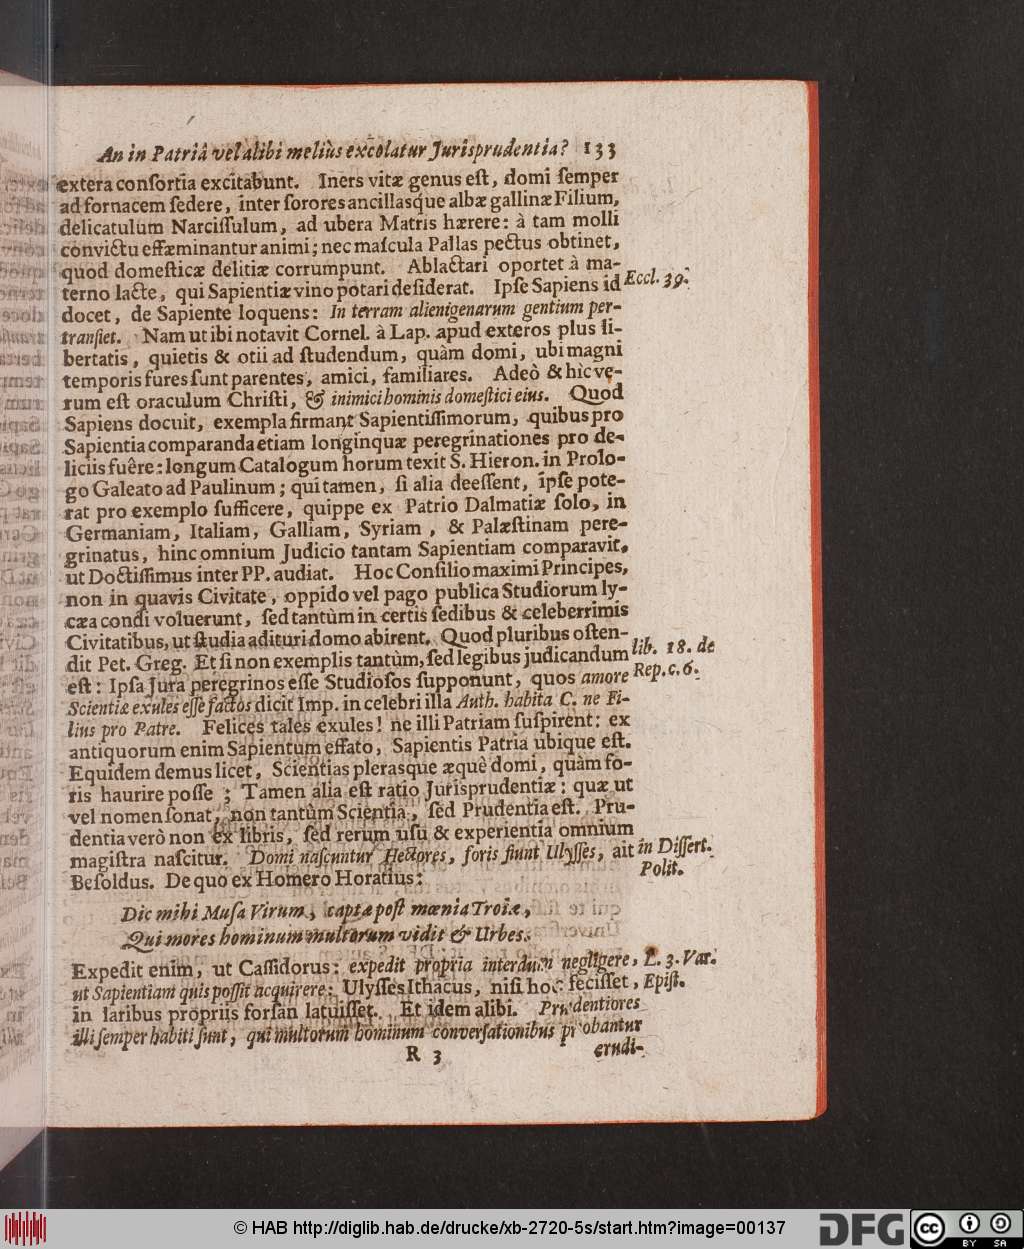 An in Patriâ vel alibi meliùs excolatur Jurisprudentia? 133
extera conſortia excitabunt. Iners vitæ genus eſt, domi ſemper
ad fornacem ſedere, inter ſorores ancillasque albæ gallinæ Filium,
delicatulum Narciſſulum, ad ubera Matris hærere: à tam molli
convictu effæminantur animi; nec maſcula Pallas pectus obtinet,
quod domeſticæ delitiæ corrumpunt. Ablactari oportet à ma-
terno lacte, qui Sapientiæ vino potari deſiderat. Ipſe Sapiens id Eccl. 39.
docet, de Sapiente loquens: In terram alienigenarum gentium per-
tranſiet. Nam ut ibi notavit Cornel. à Lap. apud exteros plus li-
bertatis, quietis & otii ad ſtudendum, quàm domi, ubi magni
temporis fures ſunt parentes, amici, familiares. Adeò & hic ve-
rum eſt oraculum Chriſti, & inimici hominis domeſtici eius. Quod
Sapiens docuit, exempla firmant Sapientiſſimorum, quibus pro
Sapientia comparanda etiam longinquæ peregrinationes pro de-
liciis fuêre: longum Catalogum horum texit S. Hieron. in Prolo-
go Galeato ad Paulinum; qui tamen, ſi alia deeſſent, ipſe pote-
rat pro exemplo ſufficere, quippe ex Patrio Dalmatiæ ſolo, in
Germaniam, Italiam, Galliam, Syriam, & Palæſtinam pere-
grinatus, hinc omnium Judicio tantam Sapientiam comparavit,
ut Doctiſſimus inter PP. audiat. Hoc Conſilio maximi Principes,
non in quavis Civitate, oppido vel pago publica Studiorum ly-
cæa condi voluerunt, ſed tantùm in certis ſedibus & celeberrimis
Civitatibus, ut ſtudia adituri domo abirent. Quod pluribus oſten-
dit Pet. Greg. Et ſi non exemplis tantùm, ſed legibus judicandum lib. 18. de
eſt: Ipſa Jura peregrinos eſſe Studioſos ſupponunt, quos amore Rep. c. 6.
Scientiæ exules eſſe factos dicit Imp. in celebri illa Auth. habita C. ne Fi-
lius pro Patre. Felices tales exules! ne illi Patriam ſuſpirent: ex
antiquorum enim Sapientum effato, Sapientis Patria ubique eſt.
Equidem demus licet, Scientias plerasque æquè domi, quàm fo-
ris haurire poſſe; Tamen alia eſt ratio Jurisprudentiæ: quæ ut
vel nomen ſonat, non tantùm Scientia, ſed Prudentia eſt. Pru-
dentia verò non ex libris, ſed rerum uſu & experientia omnium
magiſtra naſcitur. Domi naſcuntur Hectores, foris fiunt Ulyſſes, ait in Diſſert.
Beſoldus. De quo ex Homero Horatius: Polit.
Dic mihi Muſa Virum, captæ poſt mœnia Troiæ,
Qui mores hominum multorum vidit & Urbes.
Expedit enim, ut Caſſidorus: expedit propria interdum negligere, L. 3. Var.
ut Sapientiam quis poſſit acquirere: Ulyſſes Ithacus, niſi hoc feciſſet, Epiſt.
in laribus propriis forſan latuiſſet. Et idem alibi. Prudentiores
illi ſemper habiti ſunt, qui multorum hominum converſationibus probantur
R 3 erudi-
© HAB http://diglib.hab.de/drucke/xb-2720-5s/start.htm?image=00137
DFG
cc BY SA